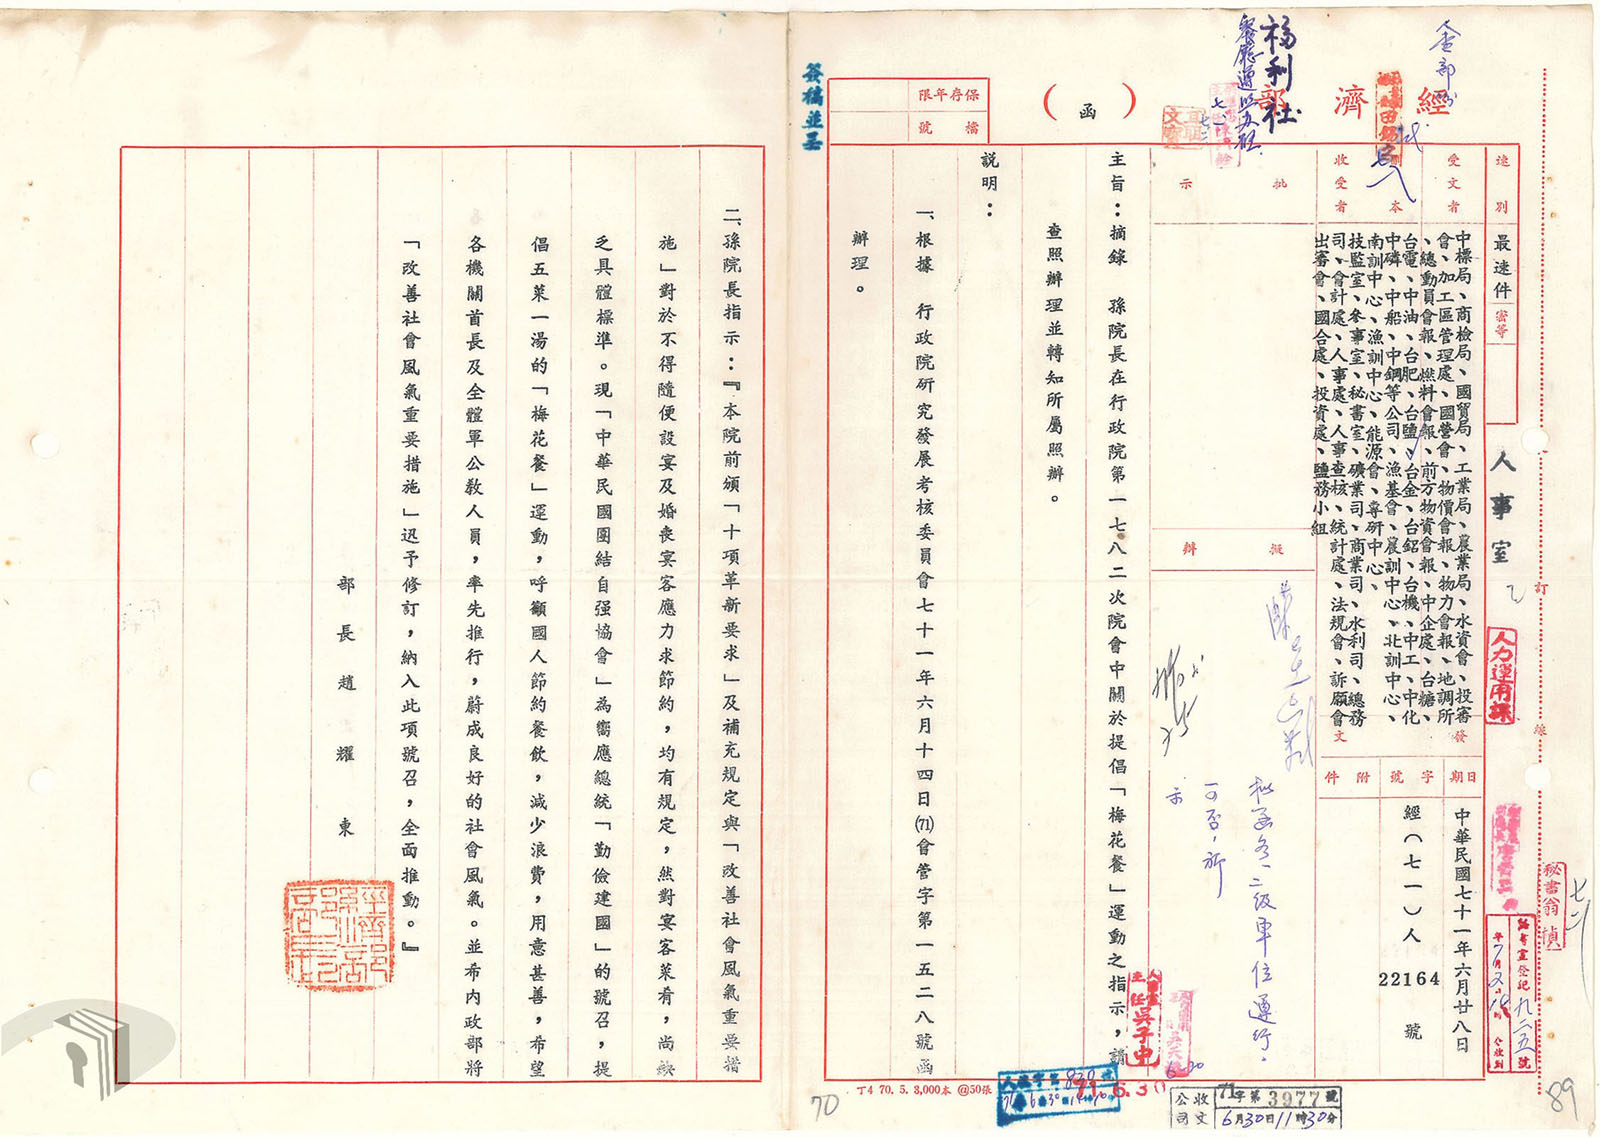 經濟部
（函）
保存年限
檔號
速別
最速件
密等
受文者
中標局、商檢局、國貿局、工業局、農業局、水資會、投審
會、加工區管理處、國營會、物價會報、物力會報、地調所
、總動員會報、燃料會報、前方物資會報、中企處、台糖、
台電、中油、台肥、台鹽、台金、台鋁、台機、中工、中化
中磷、中船、中鋼等公司、漁基會、農訓中心、北訓中心、
南訓中心、漁訓中心、能源會、專研中心、
本
收受者
技監室、參事室、秘書室、礦業司、商業司、水利司、總務
司、會計處、人事處、人事查核、統計處、法規會、訴願會
出審會、國合處、投資處、鹽務小組
發文
日期
中華民國七十一年六月廿八日
字號
經（七一）人
22164
號
附件
批示
擬辦
主旨：摘錄　孫院長在行政院第一七八二次院會中關於提倡「梅花餐」運動之指示，請
查照辦理並轉知所屬照辦。
說明：
一、根據　行政院研究發展考核委員會七十一年六月十四日(71)會管字第一五二八號函
辦理。
二、孫院長指示：『本院前頒「十項革新要求」及補充規定與「改善社會風氣重要措
施」對於不得隨便設宴及婚喪宴客應力求節約，均有規定，然對宴客菜肴，尚缺
乏具體標準。現「中華民國團結自强協會」為嚮應總統「勤儉建國」的號召，提
倡五菜一湯的「梅花餐」運動，呼籲國人節約餐飲，減少浪費，用意甚善，希望
各機關首長及全體軍公教人員，率先推行，蔚成良好的社會風氣。並希內政部將
「改善社會風氣重要措施」迅予修訂，納入此項號召，全面推動。』
部長趙耀東
經濟部
簽稿並呈
福利社
人事室
人力運用課
秘書翁
訂
線
擬函各一、二級單位遵行。
可否，祈
示
人事室
主任吳子中
71.6.30
公司收文
71字第3977號
6月30日11時30分
丁4 70. 5. 3,000本 @50張
70
89